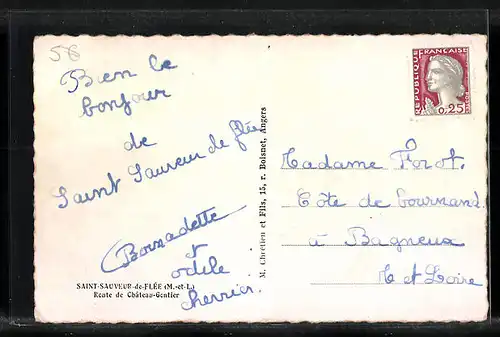 58
Bien le
bonjour
de
Saint Sauveur de flée
Bernadette
et
odile
cherrier.
SAINT-SAUVEUR-de-FLÉE (M.-et-L.)
Route de Château-Gontier
M. Chrétien et Fils, 15, r. Boisnet, Angers
REPUBLIQUE FRANÇAISE
POSTES
0,25
Madame
Côte de
à Bagneux
M et Loire